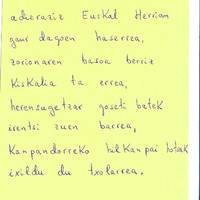 adieraziz Euskal Herrian
gaur dagoen haserrea,
zorionaren basoa berriz
Kiskalia ta errea,
herensugetzar goseti batek
irentsi zuen barrea,
Kanpandorreko hilkanpai hotsak
ixildu du txolarrea.